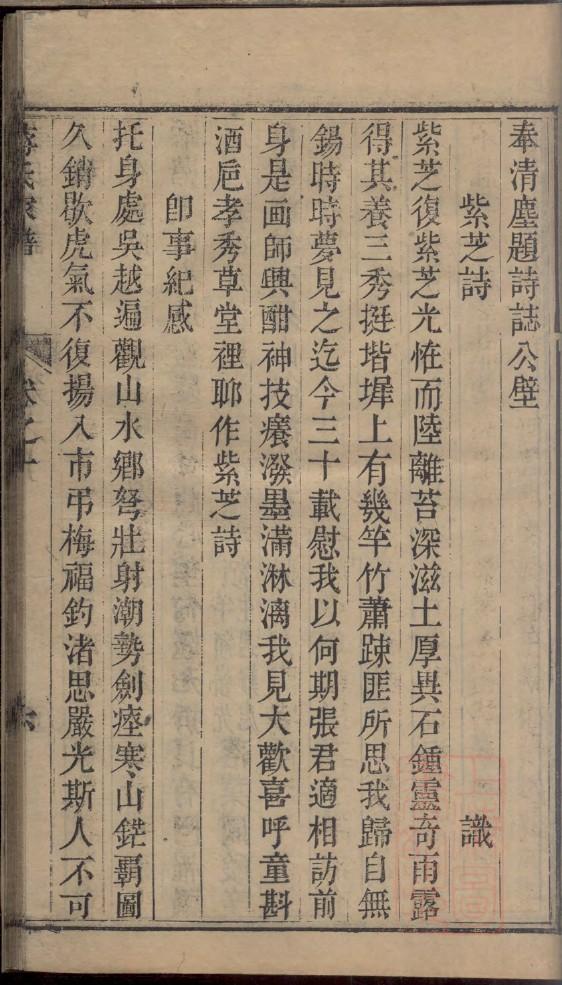 奉清塵題詩誌公壁
紫芝詩　識
紫芝復紫芝光恠而陸離苔深滋土厚異石鍾靈奇雨露
得其養三秀挺堦墀上有幾竿竹蕭踈匪所思我歸自無
錫時時夢見之迄今三十載慰我以何期張君適相訪前
身是画師興酣神技癢潑墨滿淋漓我見大歡喜呼童斟
酒巵孝秀草堂裡聊作紫芝詩
卽事紀感
托身處吳越遍觀山水鄉弩壯射潮勢劍瘗寒山鋩覇圖
久銷歇虎氣不復揚入市弔梅福釣渚思嚴光斯人不可
氏家譜
卷之十